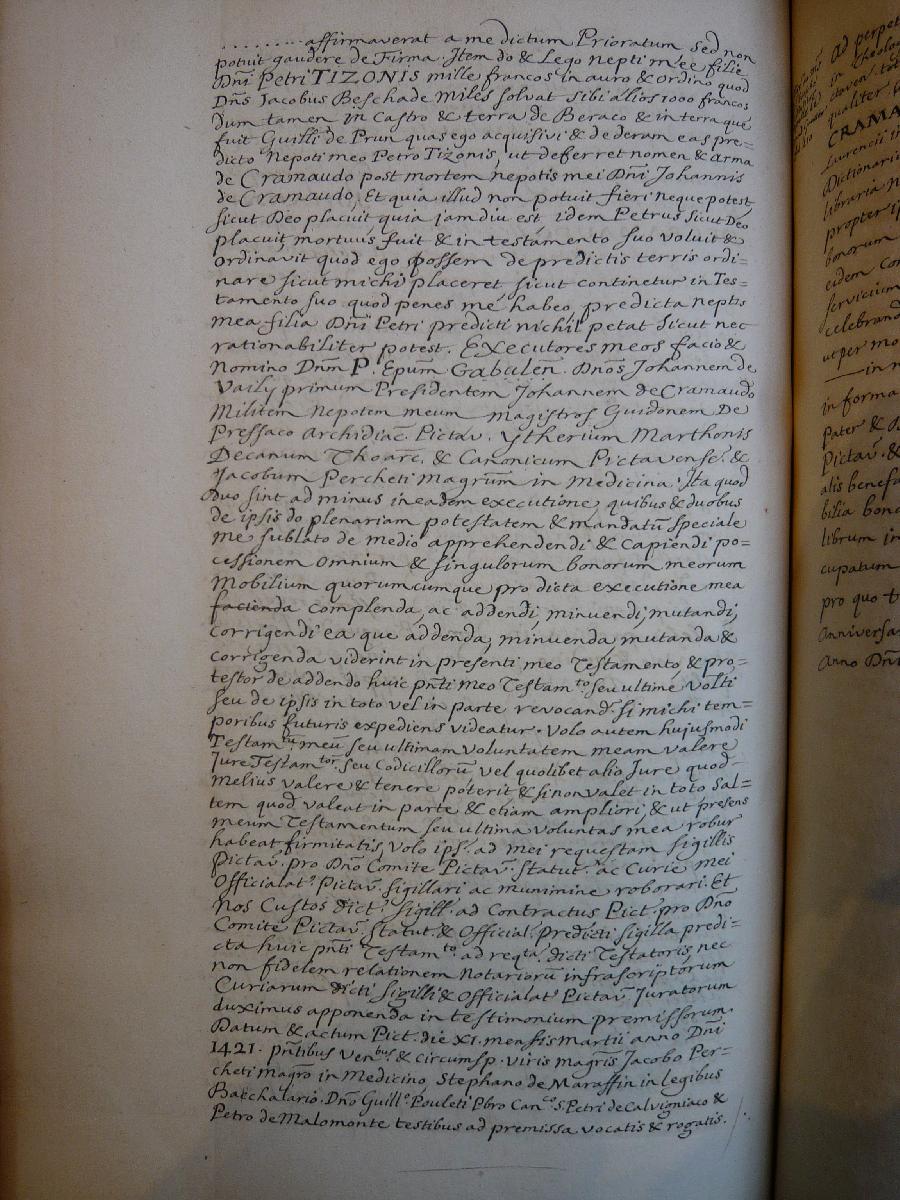 .........affirmaverat a me dictum Prioratum sed non
potuit gaudere de Firma. Item do & Lego nepti meę filię
Dñi Petri TIZONIS mille francos in auro & ordino quod
Dñs Jacobus Beschade Miles solvat sibi alios 1000 francos
dum tamen in Castro & terra de Beraco & in terra quę
fuit Guilli de Prun quas ego acquisivi & dederam eas pre=
dicto Nepoti meo Petro Tizonis, ut deferret nomen & arma
de Cramaudo post mortem nepotis mei Dñi Johannis
de Cramaudo, Et quia illud non potuit fieri neque potest
sicut Deo placuit quia jamdiu est idem Petrus sicut Deo
placuit mortuus fuit & in testamento suo voluit &
ordinavit quod ego possem de predictis terris ordi=
nare sicut michi placeret sicut continetur in Tes=
tamento suo quod penes me habeo, predicta neptis
mea filia Dñi Petri predicti nichil petat sicut nec
rationabiliter potest. Executores meos facio &
Nomino Dnm P. Epum Gabulen. Dños Johannem de
Vaily primum Presidentem Johannem de Cramaudo
Militem Nepotem meum magistros Guidonem De
Pressaco Archidiac. Pictav. Ytherium Marthonis
Decanum Thoarc. & Canonicum Pictavense. &
Jacobum Percheti Magrum in Medicina, Ita quod
duo sint ad minus in eadem executione, quibus & duobus
de ipsis do plenariam potestatem & mandatū speciale
me sublato de medio apprehendendi & capiendi po=
cessionem omnium & singulorum bonorum meorum
Mobilium quorumcumque pro dicta executione mea
facienda complenda, ac addendi, minuendi, mutandi,
corrigendi ea que addenda, minuenda, mutanda &
corrigenda viderint in presenti meo Testamento, & pro=
testor de addendo huic pñti meo Testam.to seu ultime volti
seu de ipsis in toto vel in parte revocand. si michi tem=
poribus futuris expediens videatur. Volo autem hujusmodi
Testam.tu meū seu ultimam voluntatem meam valere
Jure Testam.tor. seu Codicillorū vel quolibet alio Jure quod
melius valere & tenere poterit & si non valet in toto sal=
tem quod valeat in parte & etiam ampliori, & ut presens
meum Testamentum seu ultima voluntas mea robur
habeat firmitatis, Volo ips. ad mei requestam sigillis
Pictav. pro Dño Comite Pictav. statut. ac Curie mei
Officialat.s Pictav. sigillari ac munimine roborari. Et
Nos Custos dict. sigill. ad Contractus Pict. pro Dño
Comite Pictav. statut. & Official. Predicti sigilla predi=
cta huic pñti Testam.to ad reqta. dicti Testatoris, nec
non fidelem relationem Notariorū infrascriptorum
Curiarum dicti sigilli & Officialat.s Pictav. Juratorum
duximus apponenda in testimonium premissorum
Datum & actum Pict. die XI. mensis Martii anno Dñi
1421. pñtibus Ven.bus & circumsp. viris magr̃is Jacobo Per=
cheti magr̃o in Medicino, Stephano de Maraffin in legibus
Bacchalario. Dño Guill.o Pouleti Pbro Can.co S. Petri de Calvigniaco &
Petro de Malomonte testibus ad premissa vocatis & rogatis.
Ad perpet
in theolog
CRAMA
Laurencii in
Dictionari
libraria
propter
bonorum
eidem Con
servicium
celebrand
ut per mo
in forma
Pater & D
Pictav. &
alis benefa
bilia bona
librum in
cupatum
pro quo
Anniversa
Anno Dñi